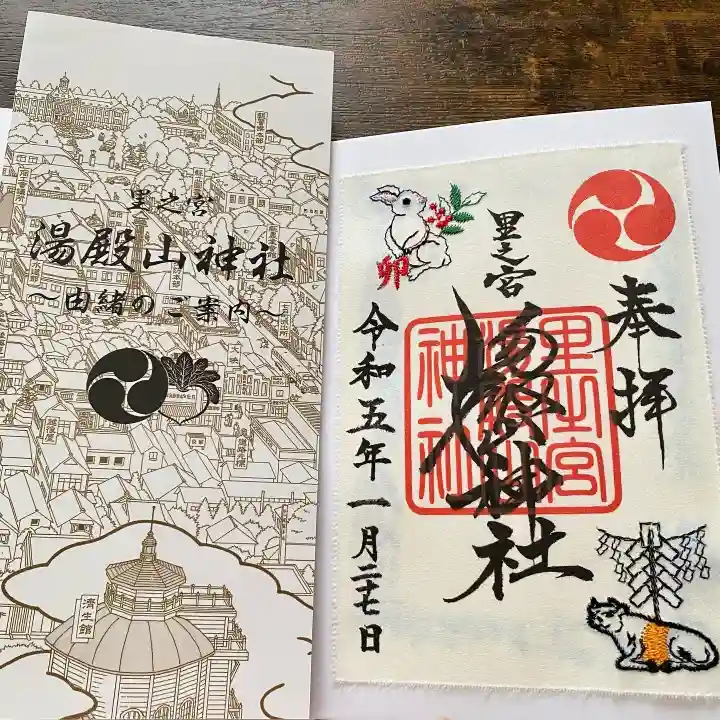 里之宮
湯殿山神社
～由緒のご案内～
済生館
奉拝
里之宮
湯殿山神社
里之宮
湯殿山
神社
卯
令和五年一月二十七日